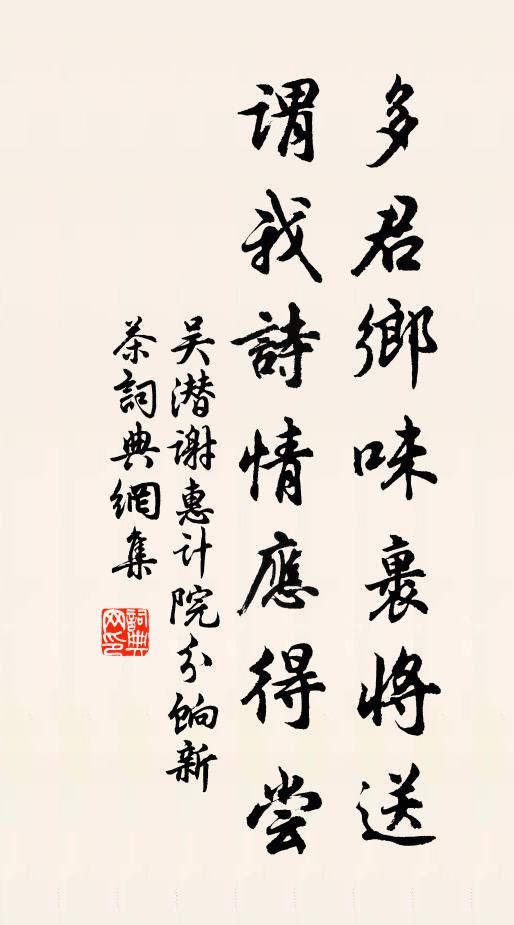 多君鄉味裹將送
謂我詩情應得嘗
吴潛谢惠计院分餉新
茶詞典網集
詞典
网印